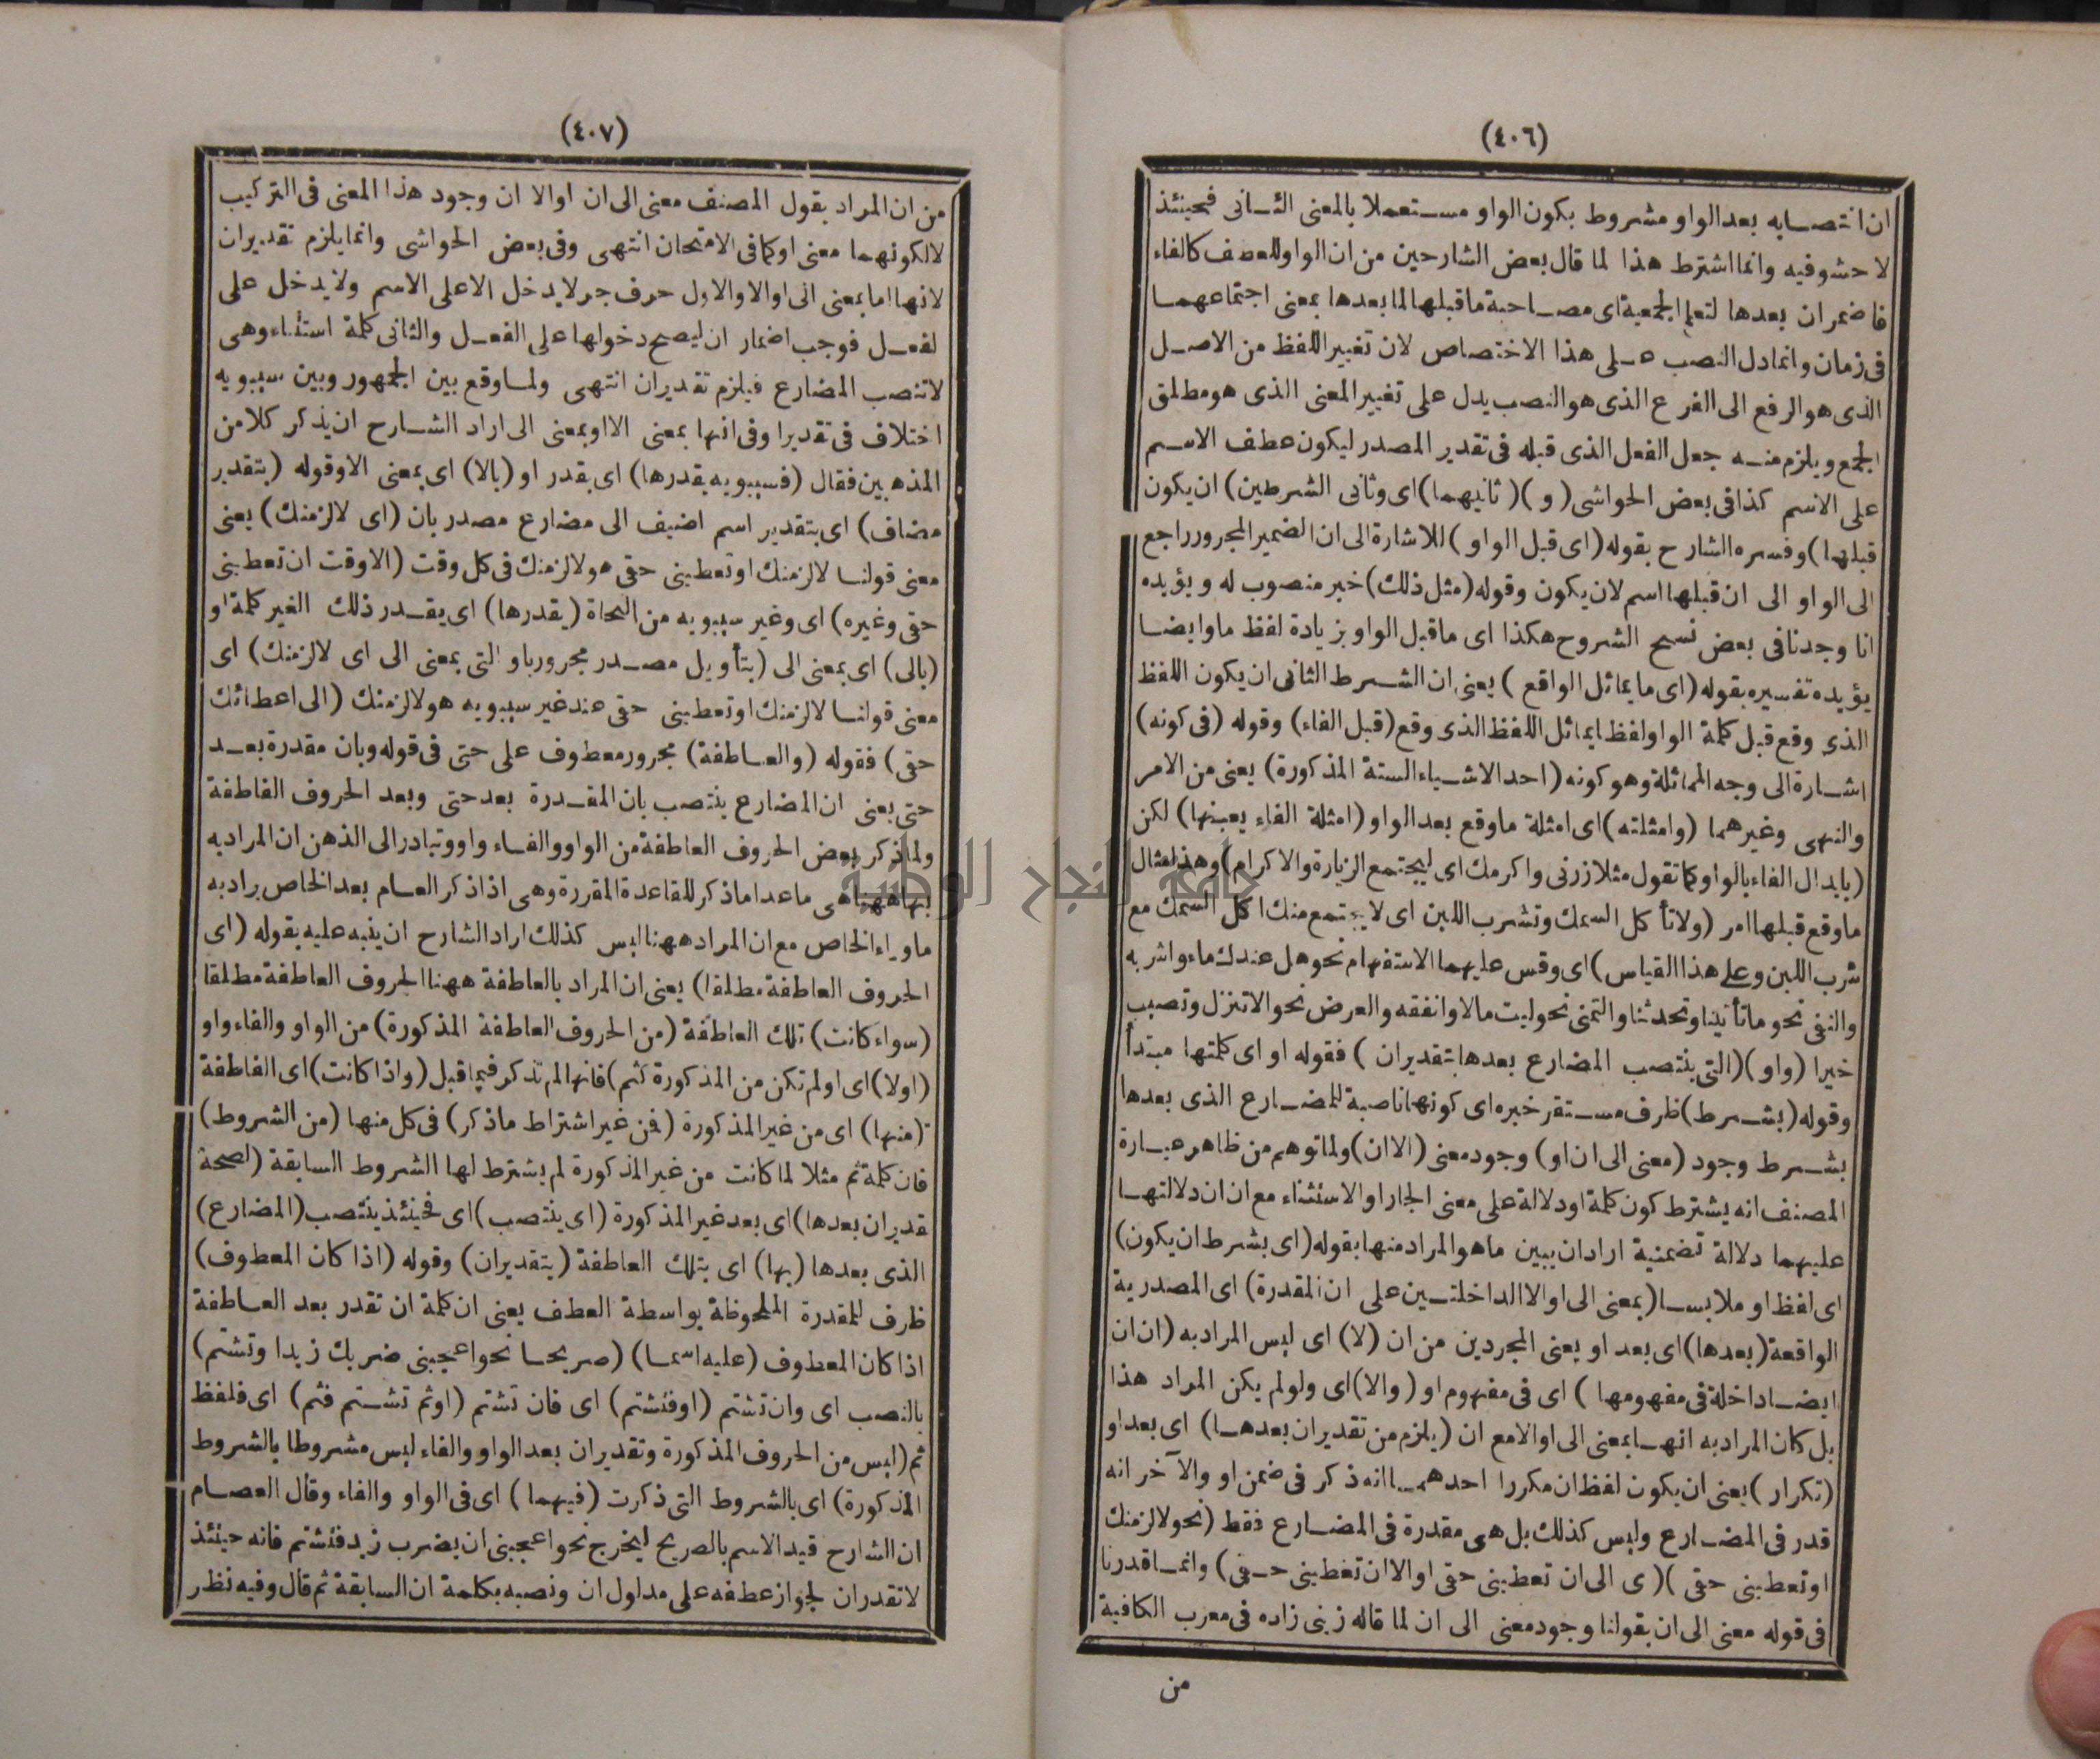 (٤٠٦)
ان انتصابه بعد الواو مشروط بكون الواو مستعملا بالمعنى الثانى فحينئذ
لا حشو فيه وانما اشترط هذا لما قال بعض الشارحين من ان الواو للعطف كالفاء
فاضمر ان بعدها لتعلم الجمعية اى مصاحبة ما قبلها لما بعدها بمعنى اجتماعهما
فى زمان وانما دل النصب على هذا الاختصاص لان تغيير اللفظ من الاصل
الذى هو الرفع الى الفرع الذى هو النصب يدل على تغيير المعنى الذى هو مطلق
الجمع ويلزم منه جعل الفعل الذى قبله فى تقدير المصدر ليكون عطف الاسم
على الاسم كذا فى بعض الحواشى (و) (ثانيهما) اى وثانى الشرطين) ان يكون
قبلها) وفسره الشارح بقوله (اى قبل الواو) للاشارة الى ان الضمير المجرور راجع
الى الواو الى ان قبلها اسم لان يكون وقوله (مثل ذلك) خبر منصوب له ويؤيده
انا وجدنا فى بعض نسخ الشروح هكذا اى ما قبل الواو بزيادة لفظ ما وايضا
يؤيده تفسيره بقوله (اى ما يماثل الواقع) يعنى ان الشرط الثانى ان يكون اللفظ
الذى وقع قبل كلمة الواو لفظا يماثل اللفظ الذى وقع (قبل الفاء) وقوله (فى كونه)
اشارة الى وجه المماثلة وهو كونه (احد الاشياء الستة المذكورة) يعنى من الامر
والنهى وغيرهما (وامثلته) اى امثلة ما وقع بعد الواو (امثلة الفاء بعينها) لكن
(بابدال الفاء بالواو كما تقول مثلا زرنى واكرمك اى ليجتمع الزيارة والاكرام) وهذا مثال
ما وقع قبلها امر (ولا تأكل السمك وتشرب اللبن اى لا يجتمع منك اكل السمك مع
شرب اللبن وعلى هذا القياس) اى وقس عليهما الاستفهام نحو هل عندك ماء واشربه
والنفى نحو ما تأتينا وتحدثنا والتمنى نحو ليت مالا وانفقه والعرض نحو الا تنزل وتصيب
خيرا (واو) (التى ينتصب المضارع بعدها بتقدير ان) فقوله او اى كلمتها مبتدأ
وقوله (بشرط) ظرف مستقر خبره اى كونها ناصبة للمضارع الذى بعدها
بشرط وجود (معنى الى ان او) وجود معنى (الا ان) ولما توهم من ظاهر عبارة
المصنف انه يشترط كون كلمة او دلالة على معنى الجار او الاستثناء مع ان ان دلالتها
عليهما دلالة تضمنية اراد ان يبين ما هو المراد منها بقوله (اى بشرط ان يكون)
اى لفظ او ملابسا (بمعنى الى او الا الداخلتين على ان المقدرة) اى المصدرية
الواقعة (بعدها) اى بعد او يعنى المجردين من ان (لا) اى ليس المراد به (ان ان
ايضا داخلة فى مفهومها) اى فى مفهوم او (والا) اى ولو لم يكن المراد هذا
بل كان المراد به انها بمعنى الى او الا مع ان (يلزم من تقدير ان بعدها) اى بعد او
(تكرار) يعنى ان يكون لفظ ان مكررا احدهما انه ذكر فى ضمن او والآخر انه
قدر فى المضارع وليس كذلك بل هى مقدرة فى المضارع فقط (نحو لالزمنك
او تعطينى حقى) (ى الى ان تعطينى حقى او الا ان تعطينى حقى) وانما قدرنا
فى قوله معنى الى ان بقولنا وجود معنى الى ان لما قاله زينى زاده فى معرب الكافية
من
(٤٠٧)
من ان المراد بقول المصنف معنى الى ان او الا ان وجود هذا المعنى فى التركيب
لا لكونهما معنى او كما فى الامتحان انتهى وفى بعض الحواشى وانما يلزم تقدير ان
لانها اما بمعنى الى او الا والاول حرف جر لا يدخل الا على الاسم ولا يدخل على
لفعل فوجب اضمار ان ليصح دخولها على الفعل والثانى كلمة استثناء وهى
لا تنصب المضارع فيلزم تقدير ان انتهى ولما وقع بين الجمهور وبين سيبويه
اختلاف فى تقديرا وفى انها بمعنى الا او بمعنى الى اراد الشارح ان يذكر كلا من
المذهبين فقال (فسيبويه يقدرها) اى يقدر او (بالا) اى بمعنى الا وقوله (بتقدير
مضاف) اى بتقدير اسم اضيف الى مضارع مصدر بان (اى لالزمنك) يعنى
معنى قولنا لالزمنك او تعطينى حقى هو لالزمنك فى كل وقت (الا وقت ان تعطينى
حقى وغيره) اى وغير سيبويه من النحاة (يقدرها) اى يقدر ذلك الغير كلمة او
(بالى) اى بمعنى الى (بتأويل مصدر مجرور باو التى بمعنى الى اى لالزمنك) اى
معنى قولنا لالزمنك او تعطينى حقى عند غير سيبويه هو لالزمنك (الى اعطائك
حقى) فقوله (والعاطفة) مجرور معطوف على حتى فى قوله وبان مقدرة بعد
حتى يعنى ان المضارع ينتصب بان المقدرة بعد حتى وبعد الحروف العاطفة
ولما ذكر بعض الحروف العاطفة من الواو والفاء واو وتبادر الى الذهن ان المراد به
بها ههنا هى ما عدا ما ذكر للقاعدة المقررة وهى اذا ذكر العام بعد الخاص يراد به
ما وراء الخاص مع ان المراد ههنا ليس كذلك اراد الشارح ان ينبه عليه بقوله (اى
الحروف العاطفة مطلقا) يعنى ان المراد بالعاطفة ههنا الحروف العاطفة مطلقا
(سواء كانت) تلك العاطفة (من الحروف العاطفة المذكورة) من الواو والفاء واو
(اولا) اى او لم تكن من المذكورة كثم) فانها لم تذكر فيما قبل (واذا كانت) اى العاطفة
(منها) اى من غير المذكورة (فمن غير اشتراط ما ذكر) فى كل منها (من الشروط)
فان كلمة ثم مثلا لما كانت من غير المذكورة لم يشترط لها الشروط السابقة (لصحة
قدير ان بعدها) اى بعد غير المذكورة (اى ينتصب) اى فحينئذ ينتصب (المضارع)
الذى بعدها (بها) اى بتلك العاطفة (بتقدير ان) وقوله (اذا كان المعطوف)
ظرف للمقدرة الملحوظة بواسطة العطف يعنى ان كلمة ان تقدر بعد العاطفة
اذا كان المعطوف (عليه اسما) (صريحا نحو اعجبنى ضربك زيدا وتشتم)
بالنصب اى وان تشتم (او فتشتم) اى فان تشتم (او ثم تشتم فثم) اى فلفظ
ثم (ليس من الحروف المذكورة وتقدير ان بعد الواو والفاء ليس مشروطا بالشروط
المذكورة) اى بالشروط التى ذكرت (فيهما) اى فى الواو والفاء وقال العصام
ان الشارح قيد الاسم بالصريح ليخرج نحو اعجبنى ان يضرب زيد فتشتم فانه حينئذ
لا تقدر ان لجواز عطفه على مدلول ان ونصبه بكلمة ان السابقة ثم قال وفيه نظر
جامعة النجاح الوطنية